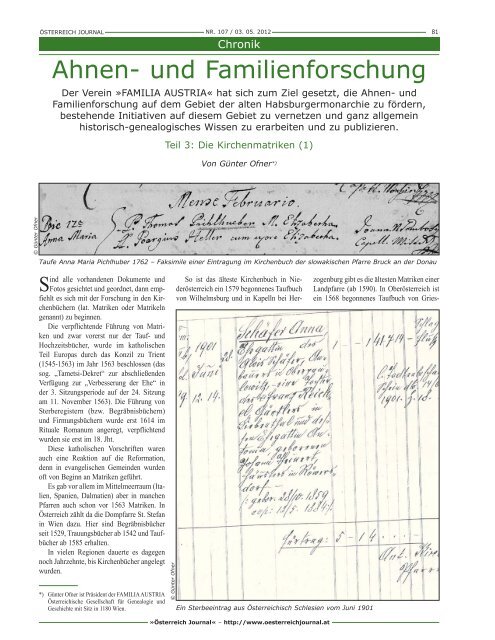 ÖSTERREICH JOURNAL NR. 107 / 03. 05. 2012 81
Chronik
Ahnen- und Familienforschung
Der Verein »FAMILIA AUSTRIA« hat sich zum Ziel gesetzt, die Ahnen- und
Familienforschung auf dem Gebiet der alten Habsburgermonarchie zu fördern,
bestehende Initiativen auf diesem Gebiet zu vernetzen und ganz allgemein
historisch-genealogisches Wissen zu erarbeiten und zu publizieren.
Teil 3: Die Kirchenmatriken (1)
Von Günter Ofner*)
Mense Februario.
Die 17
Anna Maria
P. Thomas Pichlhueber M. Elizabetha
Heller cum uxore Elizabetha.
© Günter Ofner
Taufe Anna Maria Pichlhuber 1762 – Faksimile einer Eintragung im Kirchenbuch der slowakischen Pfarre Bruck an der Donau
Sind alle vorhandenen Dokumente und
Fotos gesichtet und geordnet, dann emp-
fiehlt es sich mit der Forschung in den Kir-
chenbüchern (lat. Matriken oder Matrikeln
genannt) zu beginnen.
Die verpflichtende Führung von Matri-
ken und zwar vorerst nur der Tauf- und
Hochzeitsbücher, wurde im katholischen
Teil Europas durch das Konzil zu Trient
(1545-1563) im Jahr 1563 beschlossen (das
sog. „Tametsi-Dekret“ zur abschließenden
Verfügung zur „Verbesserung der Ehe“ in
der 3. Sitzungsperiode auf der 24. Sitzung
am 11. November 1563). Die Führung von
Sterberegistern (bzw. Begräbnisbüchern)
und Firmungsbüchern wurde erst 1614 im
Rituale Romanum angeregt, verpflichtend
wurden sie erst im 18. Jht.
Diese katholischen Vorschriften waren
auch eine Reaktion auf die Reformation,
denn in evangelischen Gemeinden wurden
oft von Beginn an Matriken geführt.
Es gab vor allem im Mittelmeerraum (Ita-
lien, Spanien, Dalmatien) aber in manchen
Pfarren auch schon vor 1563 Matriken. In
Österreich zählt da die Dompfarre St. Stefan
in Wien dazu. Hier sind Begräbnisbücher
seit 1529, Trauungsbücher ab 1542 und Tauf-
bücher ab 1585 erhalten.
In vielen Regionen dauerte es dagegen
noch Jahrzehnte, bis Kirchenbücher angelegt
wurden.
*) Günter Ofner ist Präsident der FAMILIA AUSTRIA
Österreichische Gesellschaft für Genealogie und
Geschichte mit Sitz in 1180 Wien.
So ist das älteste Kirchenbuch in Nie-
derösterreich ein 1579 begonnenes Taufbuch
von Wilhelmsburg und in Kapelln bei Her-
zogenburg gibt es die ältesten Matriken einer
Landpfarre (ab 1590). In Oberösterreich ist
ein 1568 begonnenes Taufbuch von Gries-
1901
Juni
9. 12. 14.
Schäfer Anna
Franz Reich
1901.
gebor. 28/10. 1859
1884
5 - 14
© Günter Ofner
Ein Sterbeeintrag aus Österreichisch Schlesien vom Juni 1901
»Österreich Journal« – http://www.oesterreichjournal.at